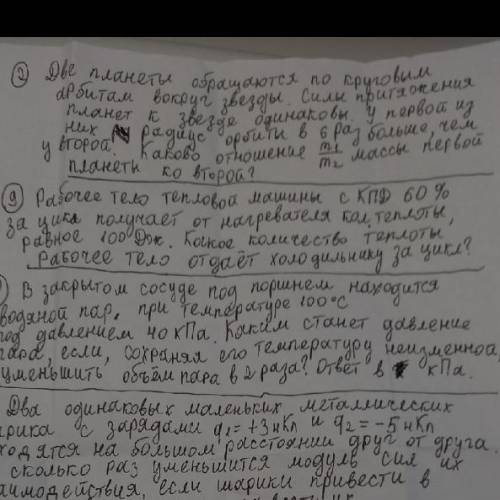 ② Две планеты обращаются по круговым
орбитам вокруг звезды. Силы притяжения
планет к звезде одинаковы. У первой из
них радиус орбиты в 6 раз больше, чем
у второй. Каково отношение m1/m2 массы первой
планеты ко второй?
⑨ Рабочее тело тепловой машины с КПД 60%
за цикл получает от нагревателя кол. теплоты,
равное 100 Дж. Какое количество теплоты
рабочее тело отдаёт холодильнику за цикл?
В закрытом сосуде под поршнем находится
водяной пар, при температуре 100°С
под давлением 40 кПа. Каким станет давление
пара, если, сохраняя его температуру неизменной,
уменьшить объём пара в 2 раза? Ответ в кПа.
Два одинаковых маленьких металлических
арика с зарядами q1=+3нКл и q2=-5нКл
ходятся на большом расстоянии друг от друга.
сколько раз уменьшится модуль сил их
аимодействия, если шарики привести в